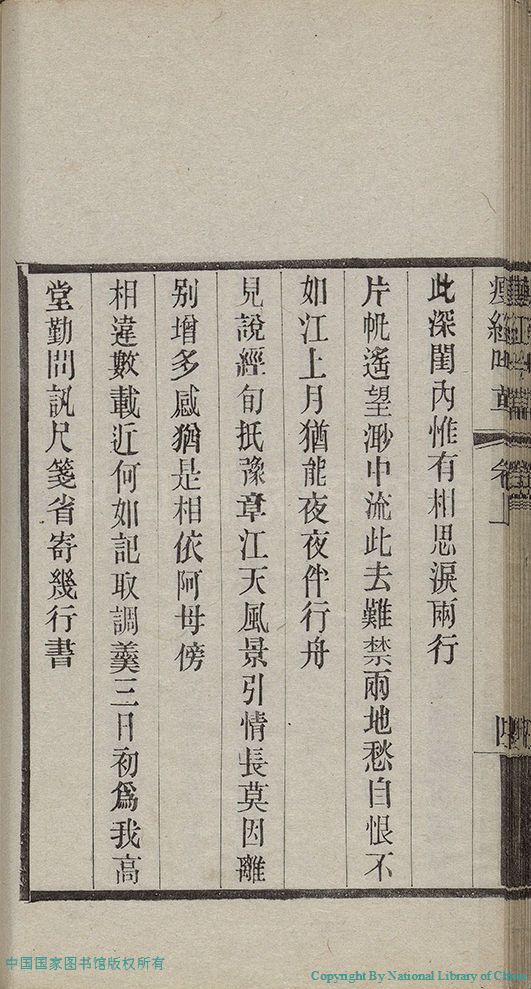 此深閨內惟有相思淚兩行
片帆遙望渺中流此去難禁兩地愁自恨不
如江上月猶能夜夜伴行舟
見說經旬抵豫章江天風景引情長莫因離
別增多感猶是相依阿母傍
相違數載近何如記取調羹三日初為我高
堂勤問訊尺箋省寄幾行書
中国国家图书馆版权所有
Copyright By National Library of China